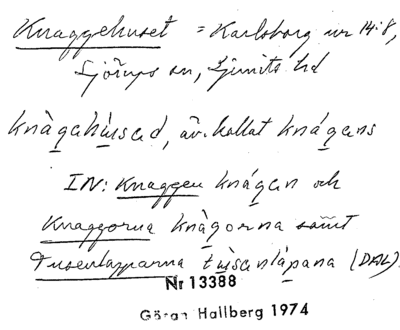 Knaggehuset = Karlsborg nr 14:8,
Sjörups sn, Ljunits hd
knàgahu̱sed, äv. kallat knágans
IN: Knaggen knágan och
Knaggorna knàgorna samt
Tusenlapparna tu̱sanlápana (DAL).
Nr 13388
Göran Hallberg 1974